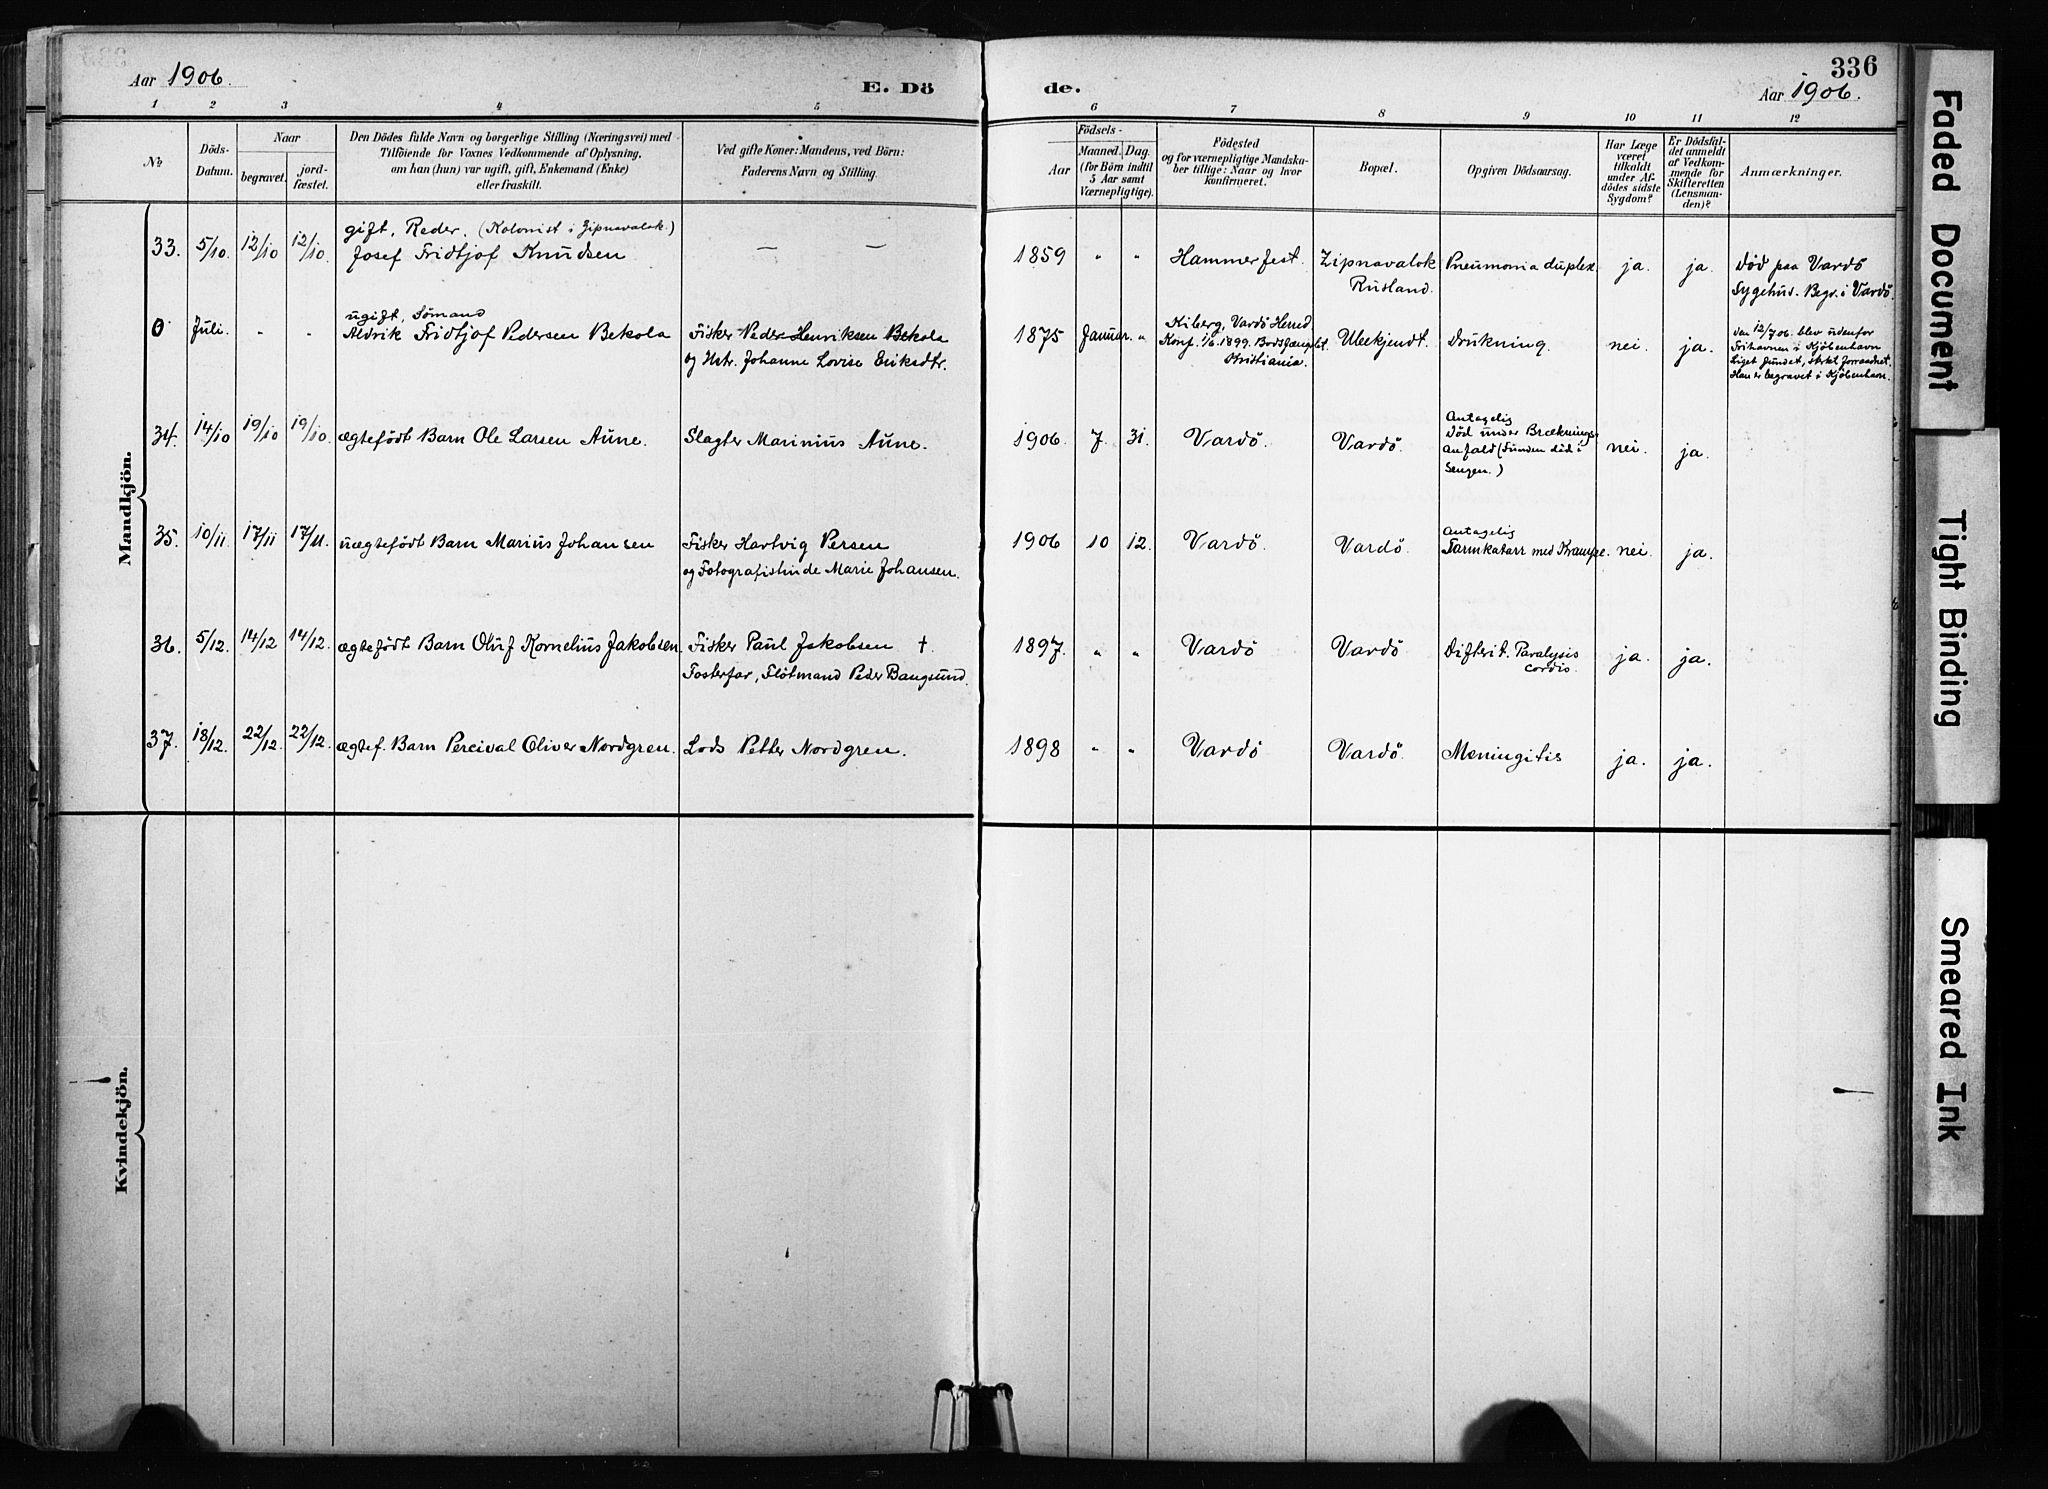 336
Aar 1906.
E. Dö
de.
Aar 1906.
1 2 3 4 5 6 7 8 9 10 11 12
No
Döds-
Datum.
Naar
begravet.
jord-
fæstet.
Den Dödes fulde Navn og borgerlige Stilling (Næringsvei) med
Tilföiende for Voxnes Vedkommende af Oplysning,
om han (hun) var ugift, gift, Enkemand (Enke)
eller fraskilt.
Ved gifte Koner: Mandens, ved Börn:
Faderens Navn og Stilling.
Födsels-
Aar
Maaned.
Dag
(for Börn indtil
5 Aar samt
Værnepligtige).
Födested
og for værnepligtige Mandska-
ber tillige: Naar og hvor
konfirmeret.
Bopæl.
Opgiven Dödsaarsag.
Har Læge
været
tilkaldt
under Af-
dödes sidste
Sygdom?
Er Dödsfal-
det anmeldt
af Vedkom-
mende for
Skifteretten
(Lensman-
den)?
Anmærkninger.
Mandkjön.
gift, Reder. (Kolonist i Zipnavalok.)
33. 5/10. 12/10 12/10. Josef Fridtjof Knudsen — — 1859 " " Hammerfest. Zipnavalok Pneumonia duplex. ja. ja. Död paa Vardö
Rusland. Sygehus. Begr. i Vardö.
ugift, Sömand
0 Juli. - - Aldrik Fridtjof Pedersen Bekola Fisker Peder Henriksen Bekola 1875 Januar. " Kiberg, Vardö Herred Ubekjendt. Drukning. nei. ja. Den 12/7 06. blev udenfor
og Hstr. Johanne Lovise Eriksdtr. Konf. 1/6. 1899. Bodsfængslet. Frihavnen i Kjöbenhavn
Kristiania. Liget fundet, stærkt forraadnet.
Han er begravet i Kjöbenhavn.
34. 14/10 19/10 19/10. ægtefödt Barn Ole Larsen Aune. Slagter Marinius Aune. 1906. 7. 31. Vardö. Vardö. Antagelig nei. ja.
Död under Bræknings-
anfald (Funden död i
Sengen.)
35. 10/11 17/11 17/11. uægtefödt Barn Marius Johansen Fisker Hartvig Persen 1906 10 12. Vardö. Vardö. Antagelig nei. ja.
og Fotografistinde Marie Johansen. Tarmkatarr med Krampe.
36. 5/12. 14/12 14/12. ægtefödt Barn Oluf Kornelius Jakobsen. Fisker Paul Jakobsen †. 1897. " " Vardö Vardö Difterit. Paralysis ja. ja.
Fosterfar, Flötmand Peder Bangsund. cordis.
37. 18/12. 22/12. 22/12. ægtef. Barn Percival Oliver Nordgren. Lods Petter Nordgren. 1898 " " Vardö Vardö. Meningitis ja. ja.
Kvindekjön.
Faded Document
Tight Binding
Smeared Ink